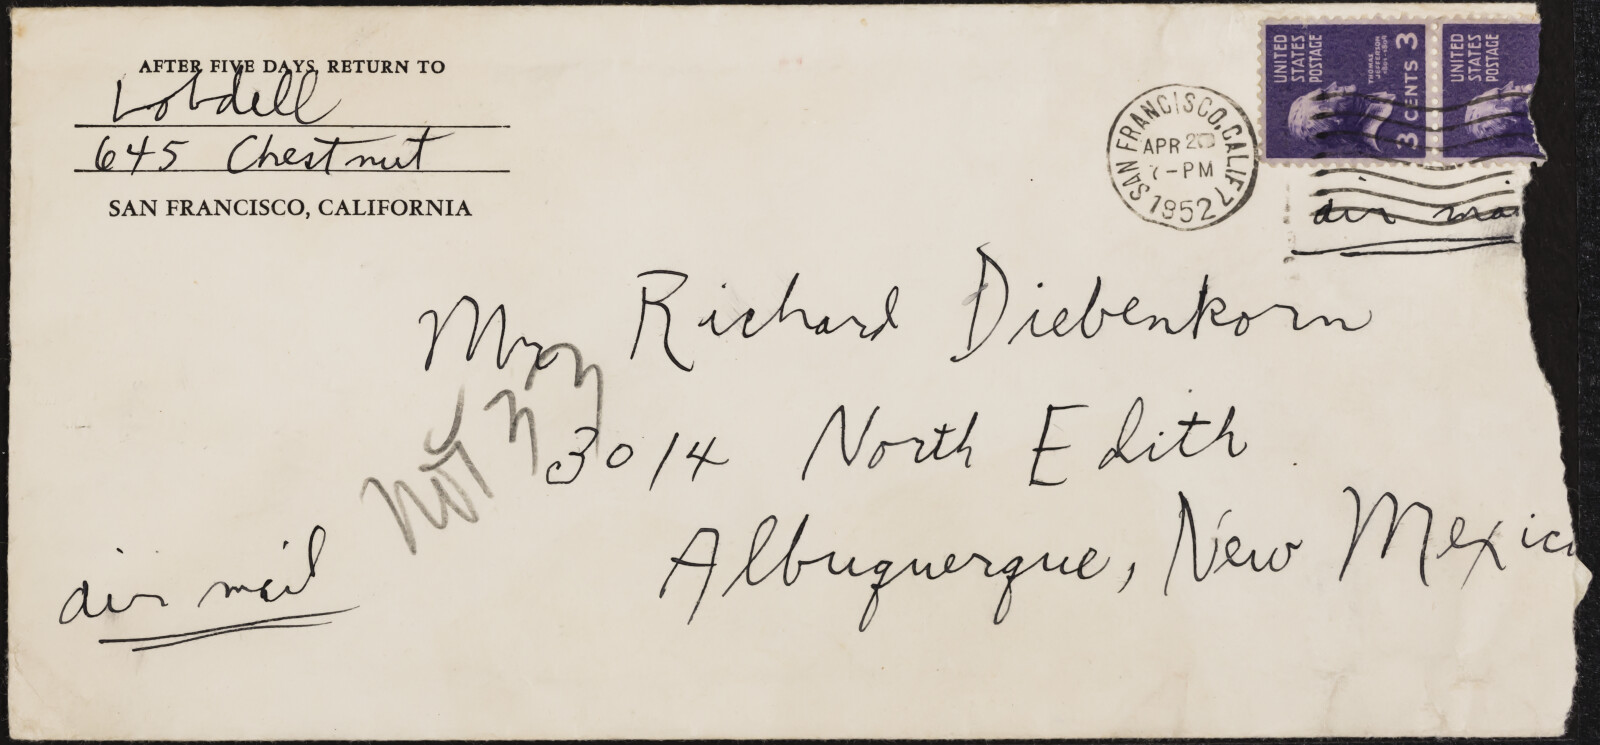 AFTER FIVE DAYS, RETURN TO
Lobdell
645 Chestnut
SAN FRANCISCO, CALIFORNIA
SAN FRANCISCO, CALIF.
APR
7-PM
1952
UNITED STATES POSTAGE
THOMAS JEFFERSON
3 CENTS 3
UNITED STATES POSTAGE
air mai
Mr Richard Diebenkorn
3014 North Edith
Albuquerque, New Mexico
not
air mail